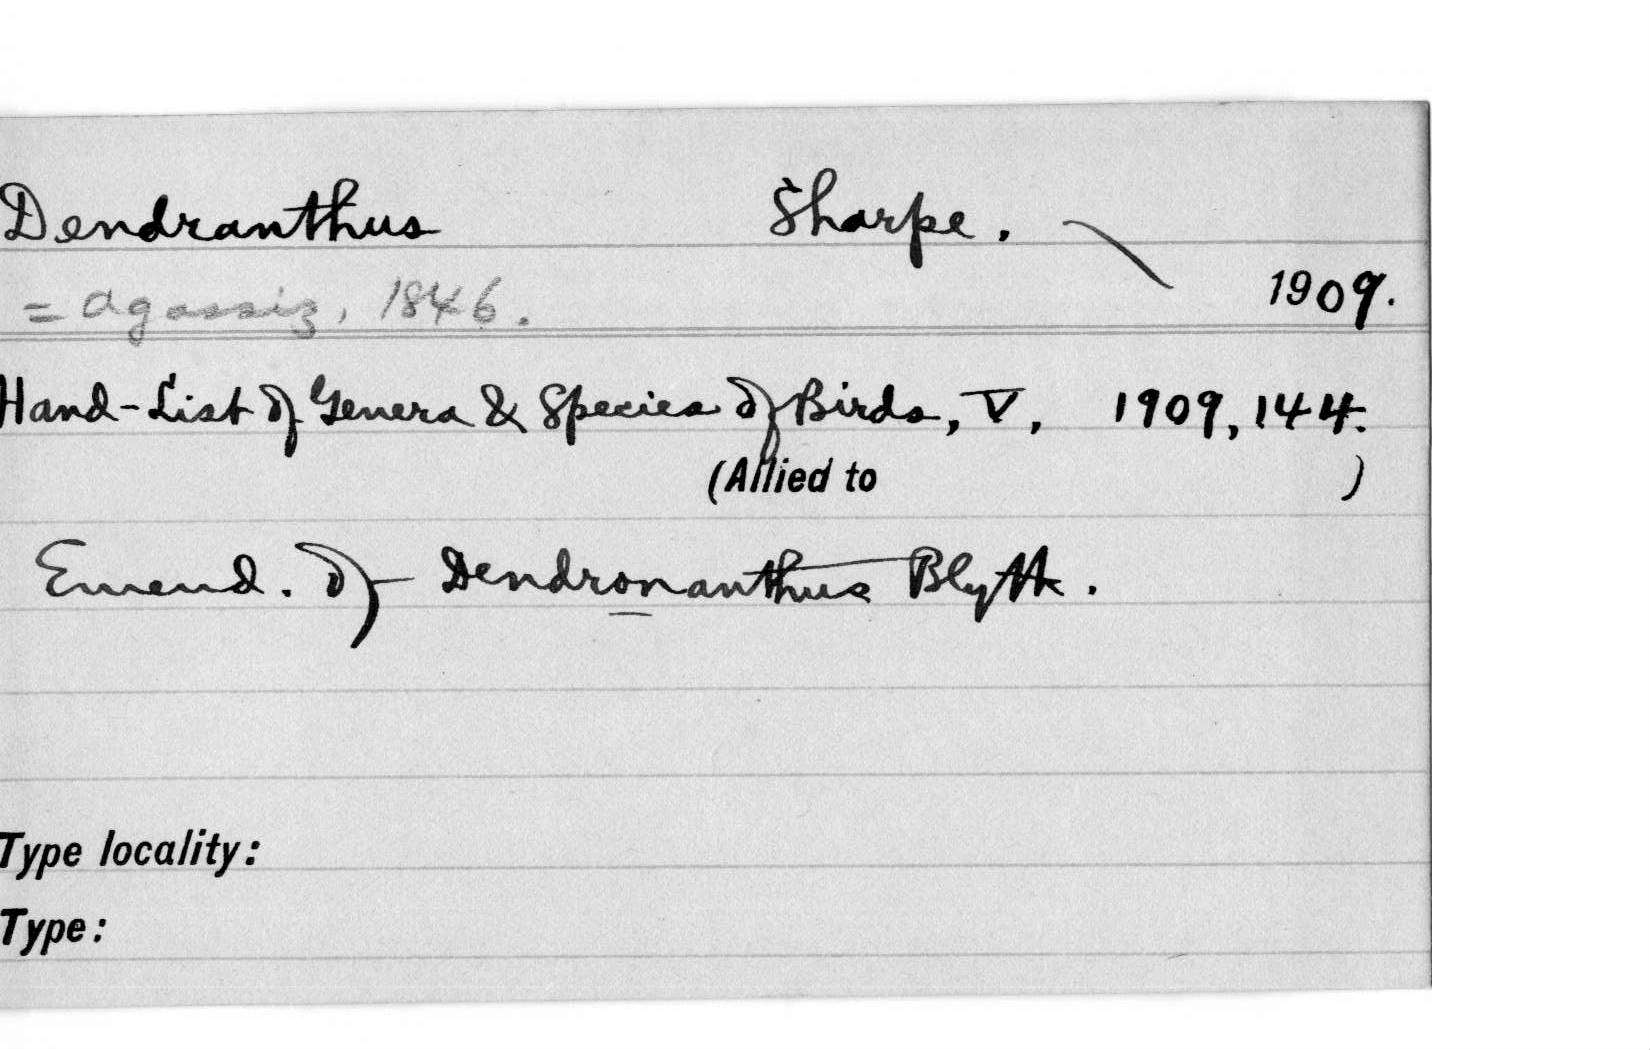 Dendranthus Sharpe.
= Agassiz, 1846. 1909.
Hand-List of Genera & Species of Birds, V, 1909, 144.
(Allied to )
Emend. of Dendronanthus Blyth.
Type locality:
Type: